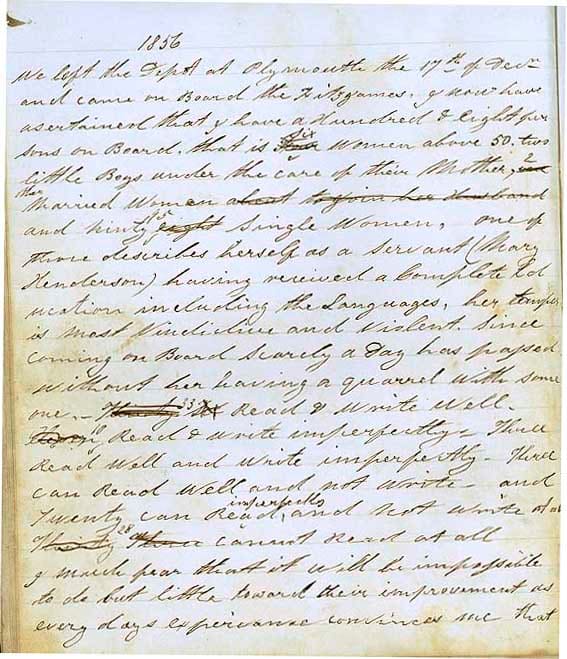 1856
We left the Depôt at Plymouth the 17th of Decr
and came on Board the Fitzjames. I now have
asertained that I have a Hundred & Eight per
sons on Board. that is six Women above 50. two
little Boys under the care of their Mother, 2
other
Married Women about to join her Husband
and Ninty eight Single Women, one of
those describes herself as a Servant (Mary
Henderson) having received a Complete Ed
ucation including the Languages, her temper
is most Vindictive and Violent. Since
coming on Board Scarcly a Day has passed
without her having a quarrel with some
one. – Thirty six 33 Read & Write Well –
19 Read & write imperfectly – Three
Read Well and write imperfectly – Three
can Read Well and not write – and
imperfectly
Twenty can Read, and not write at all
Thirty Three 28 cannot Read at all
I much fear that it will be impossible
to do but little toward their improvement as
every days experiance convinces me that